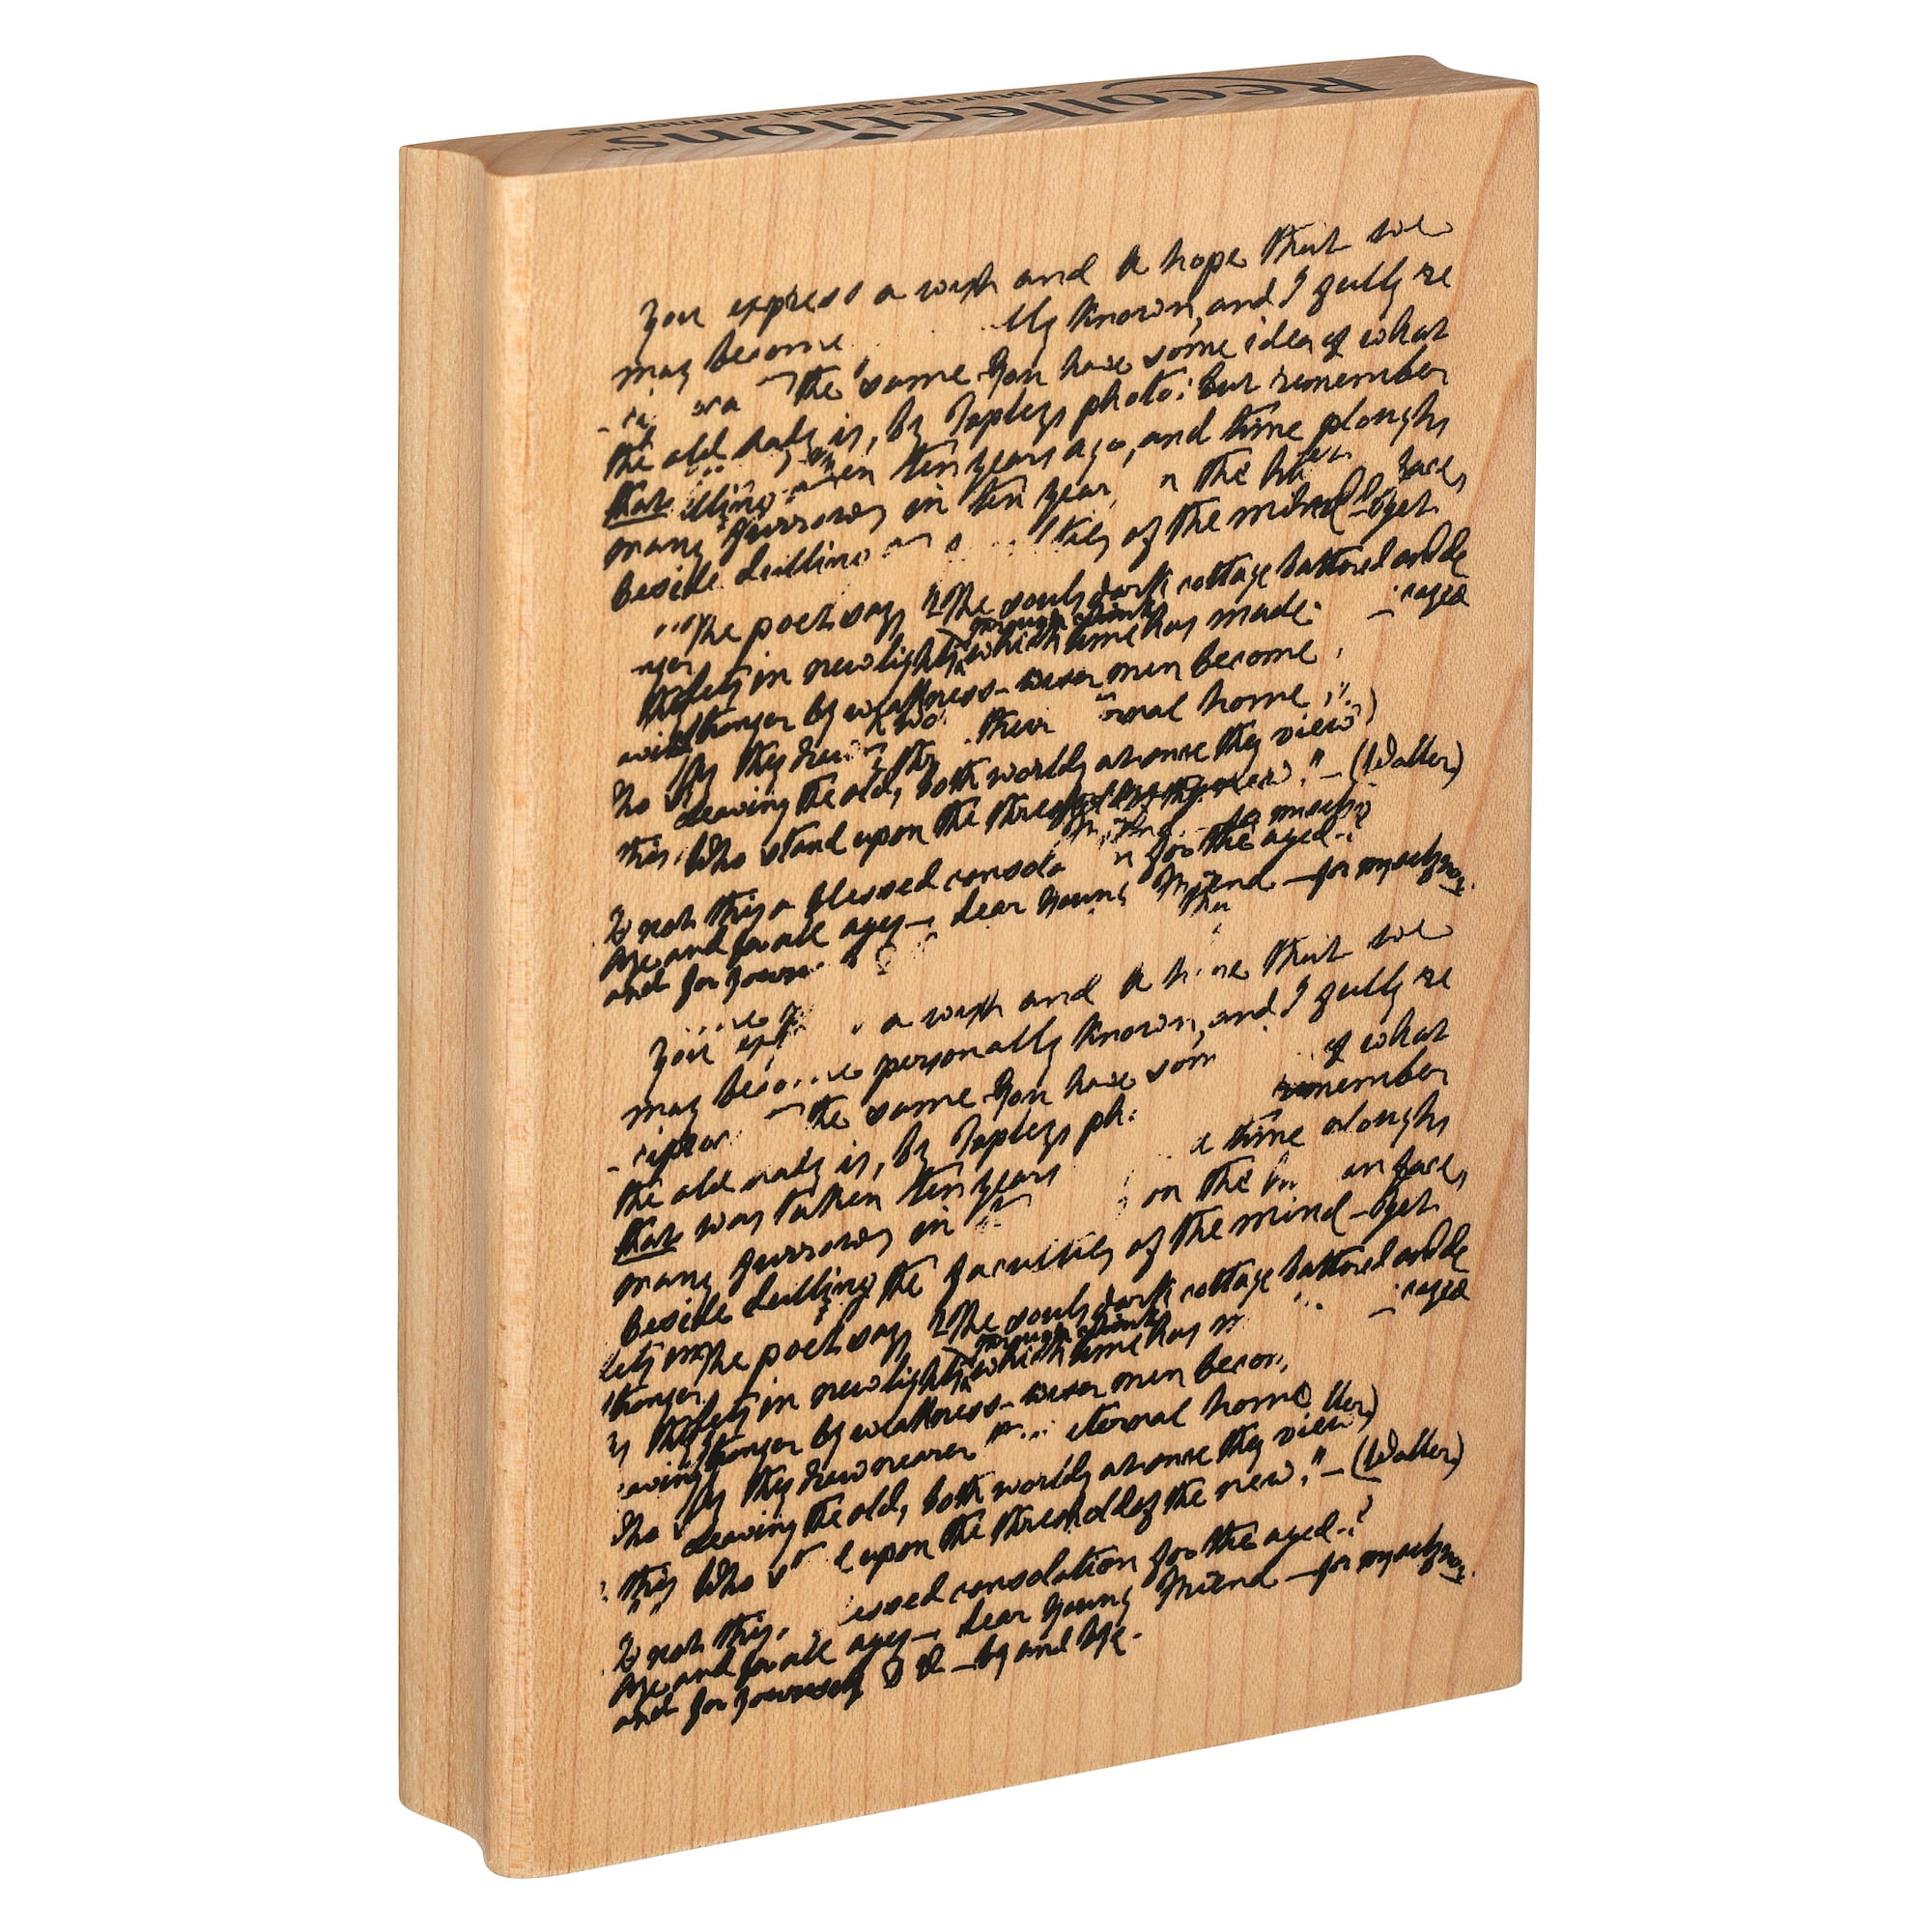 Recollections™
capturing special memories™
You express a wish and a hope that we
may become lly known, and I fully re
the same. You have some idea of what
the old lady is, by Tapley's photo: but remember
that ten years ago, and time ploughs
many furrows in ten year n the faces,
beside dulling ties of the mind — Yet
The poet says "The soul's dark cottage battered and de
in new lights through chinks which time has made. cayed
stronger by weakness — wiser men become
As they draw their home,"
Leaving the old, both worlds at once they view
this Who stand upon the threshold of the new." — (Waller)
Is not this a blessed consola n for the aged —?
Age and for all ages — dear young friend — for myself now,
and for
You a wish and a that we
may become personally known, and I fully re
the same. You have som of what
the old lady is, by Tapley's ph remember
that was taken ten years time ploughs
many furrows in on the faces,
Beside dulling the faculties of the mind — Yet
The poet says "The soul's dark cottage battered and de
in new lights through chinks which time has cayed
stronger by weakness — wiser men becom
As they draw nearer eternal home
Leaving the old, both worlds at once they view
this Who upon the threshold of the new." — (Waller)
Is not this essed consolation for the aged —?
Age and for all ages — dear young friend — for myself now,
and for yourself — by and bye.